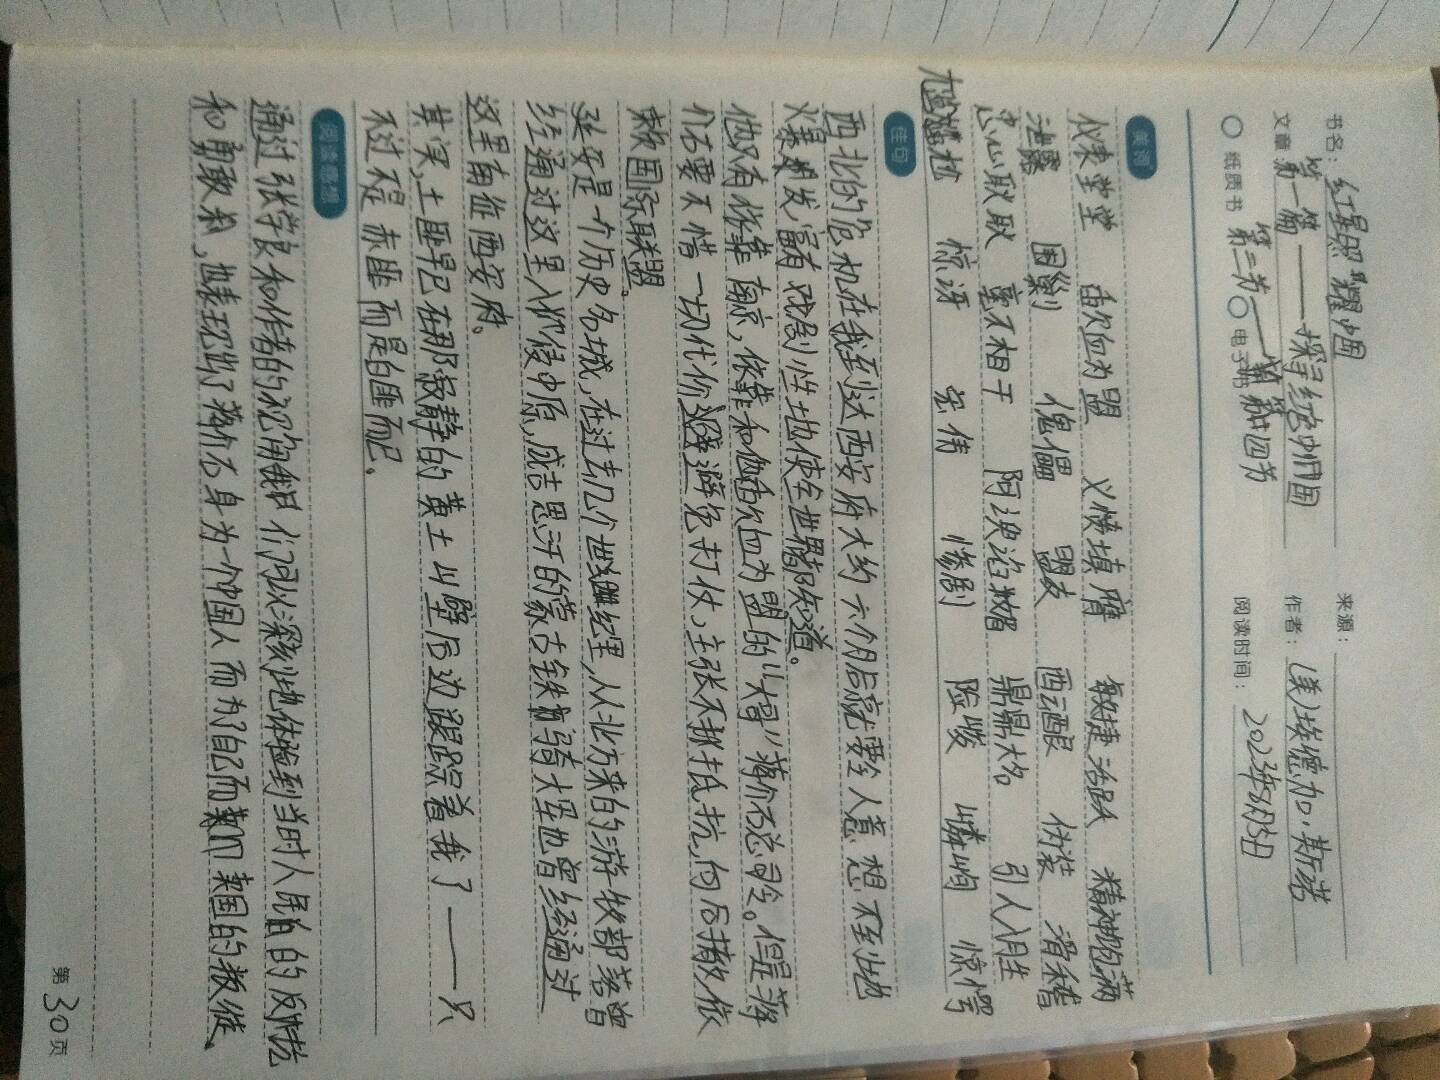 书名：红星照耀中国
来源：
文章：第一篇——探寻红色中国
作者：（美）埃德加·斯诺
纸质书 第二节 电子书 第四节
阅读时间：2023年3月5日
美词
仪表堂堂 歃血为盟 义愤填膺 敏捷活跃 精神饱满
泄露 围剿 傀儡 盟友 酝酿 伪装 滑稽
忠心耿耿 毫不相干 阿谀谄媚 鼎鼎大名 引人入胜
尴尬 惊讶 宏伟 惨剧 险峻 嶙峋 惊愕
佳句
西北的危机在我到达西安府大约六个月后就要令人意想不到地
爆发，富有戏剧性地使全世界都知道。
他只有依靠南京，依靠和他歃血为盟的“大哥”蒋介石总司令。但是蒋
介石要不惜一切代价避免打仗，主张不抵抗，向后撤，依
赖国际联盟。
延安是个历史名城，在过去几个世纪里，从北方来的游牧部落曾
经通过这里入侵中原，成吉思汗的蒙古铁骑大军也曾经通过
这里南征西安府。
其实，土匪早已在那寂静的黄土山壁后边跟踪着我了——只
不过不是赤匪而是白匪而已。
阅读感想
通过张学良和作者的视角我们可以深刻地体验到当时人民的反抗
和勇敢，也表现出了蒋介石身为个中国人而为了自己而
第30页